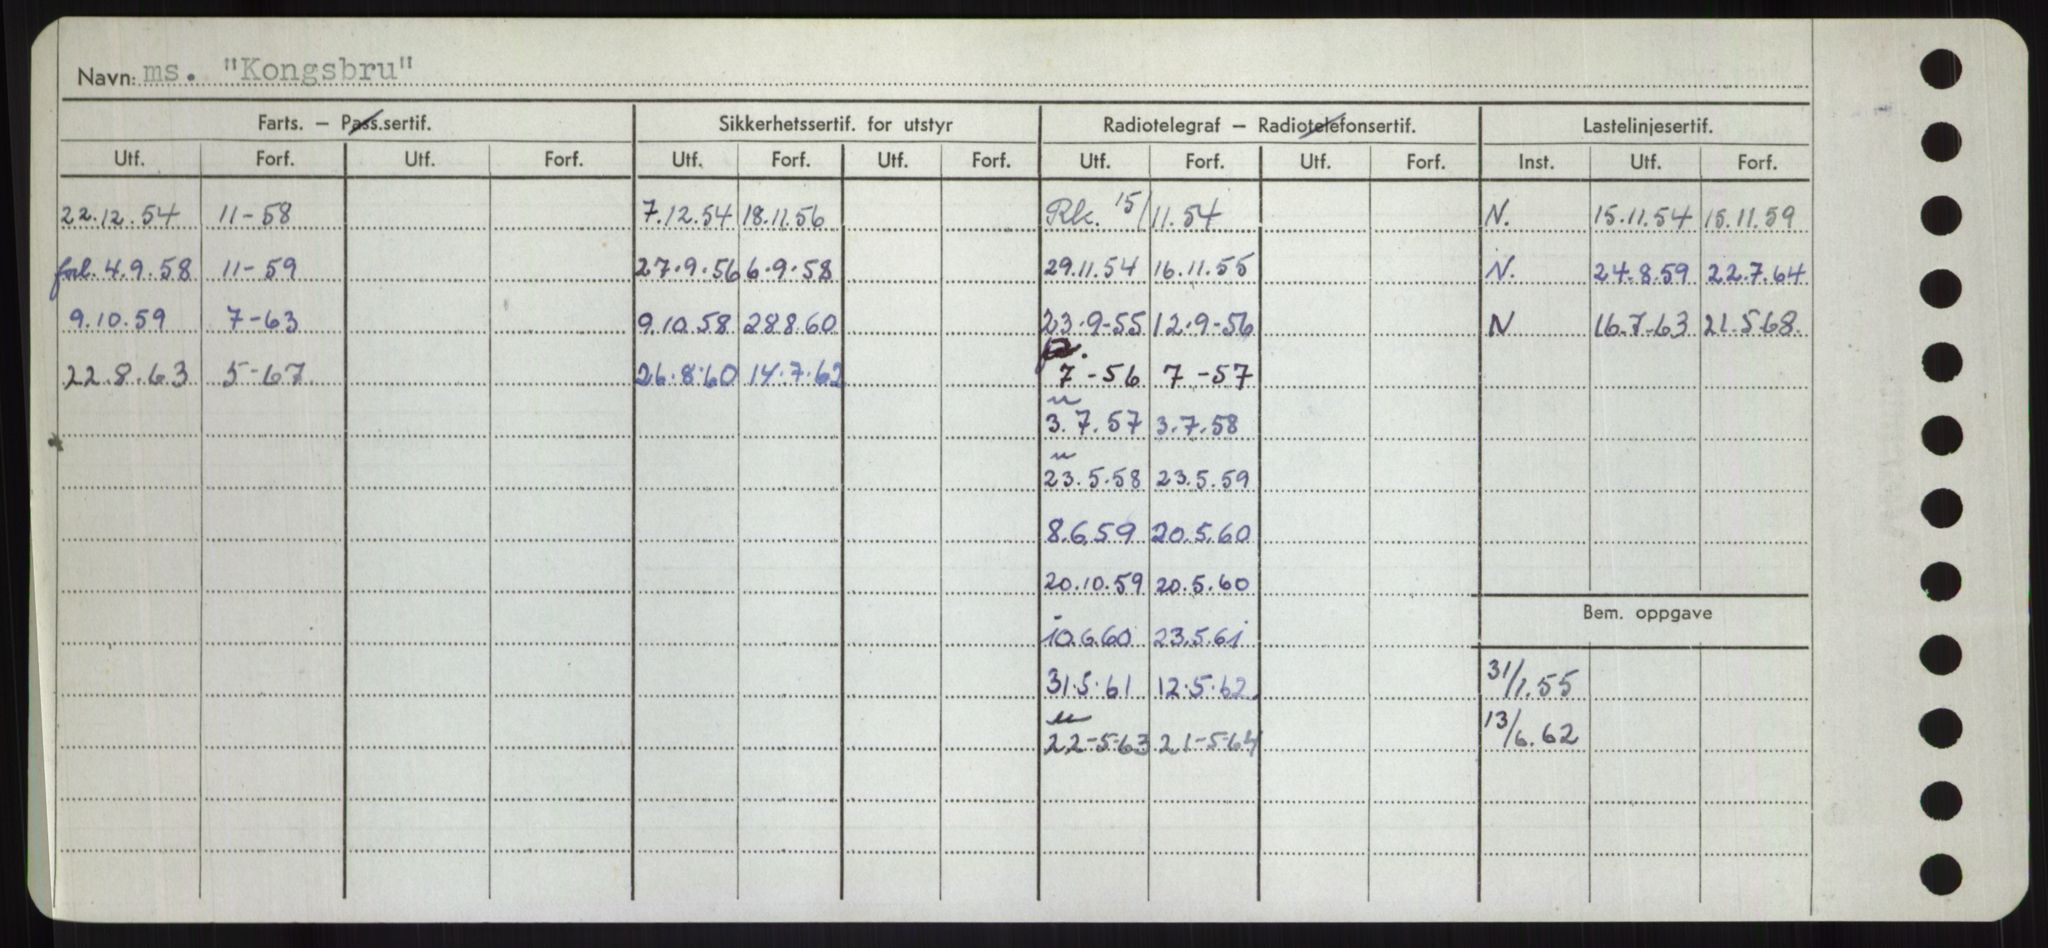 Navn: ms. "Kongsbru"
Farts. – Pass.sertif. Sikkerhetssertif. for utstyr Radiotelegraf – Radiotelefonsertif. Lastelinjesertif.
Utf. Forf. Utf. Forf. Utf. Forf. Utf. Forf. Utf. Forf. Utf. Forf. Inst. Utf. Forf.
22.12.54 11-58 7.12.54 18.11.56 Rk. 15/11.54 N. 15.11.54 15.11.59
forl. 4.9.58 11-59 27.9.56 6.9.58 29.11.54 16.11.55 N. 24.8.59 22.7.64
9.10.59 7-63 9.10.58 28.8.60 23.9-55 12.9-56 N 16.7-63 21.5.68.
22.8.63 5-67 26.8.60 14.7.62 7-56 7-57
3.7.57 3.7.58
23.5.58 23.5.59
8.6.59 20.5.60
20.10.59 20.5.60
Bem. oppgave
10.6.60 23.5.61
31.5.61 12.5.62 31/1.55
22-5-63 21-5-64 13/6.62